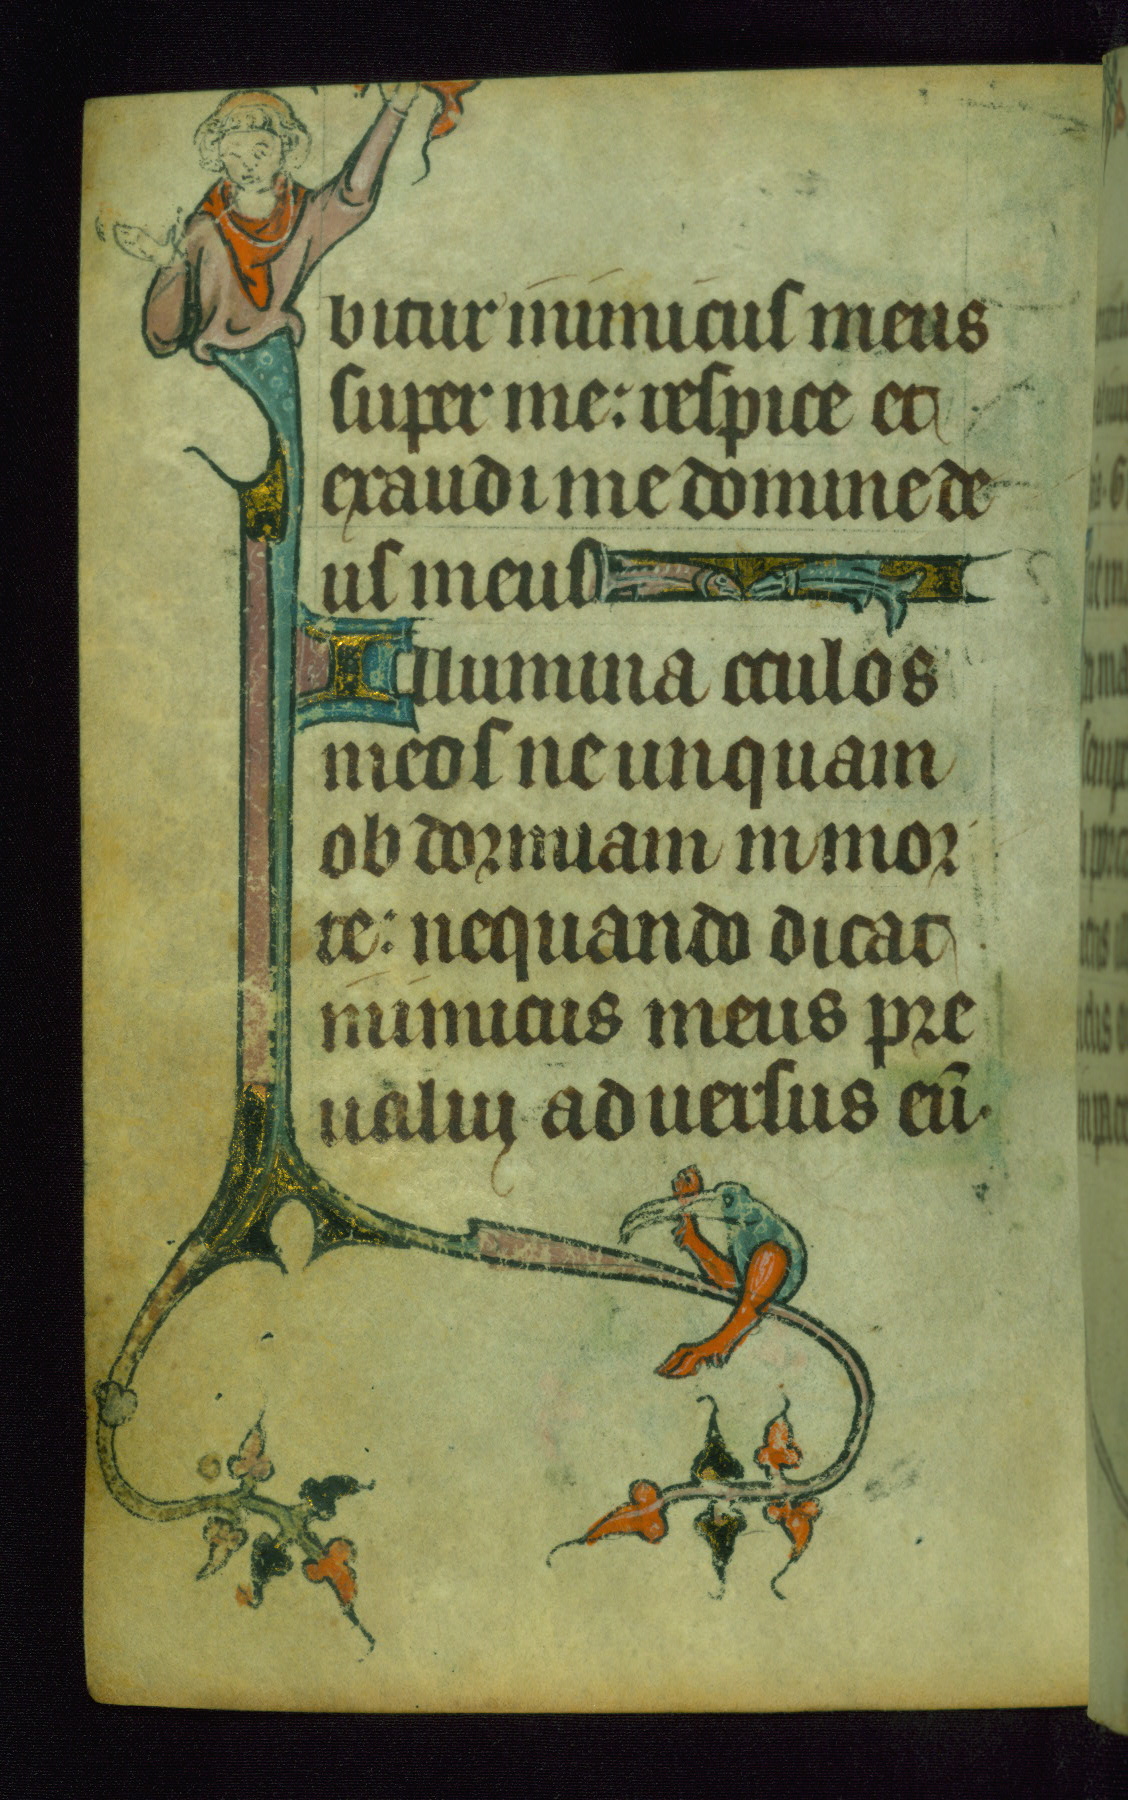 bitur inimicus meus
super me: respice et
exaudi me domine de
us meus
Illumina oculos
meos ne unquam
ob dormiam in mor
te: nequando dicat
inimicus meus pre
ualui aduersus eū.